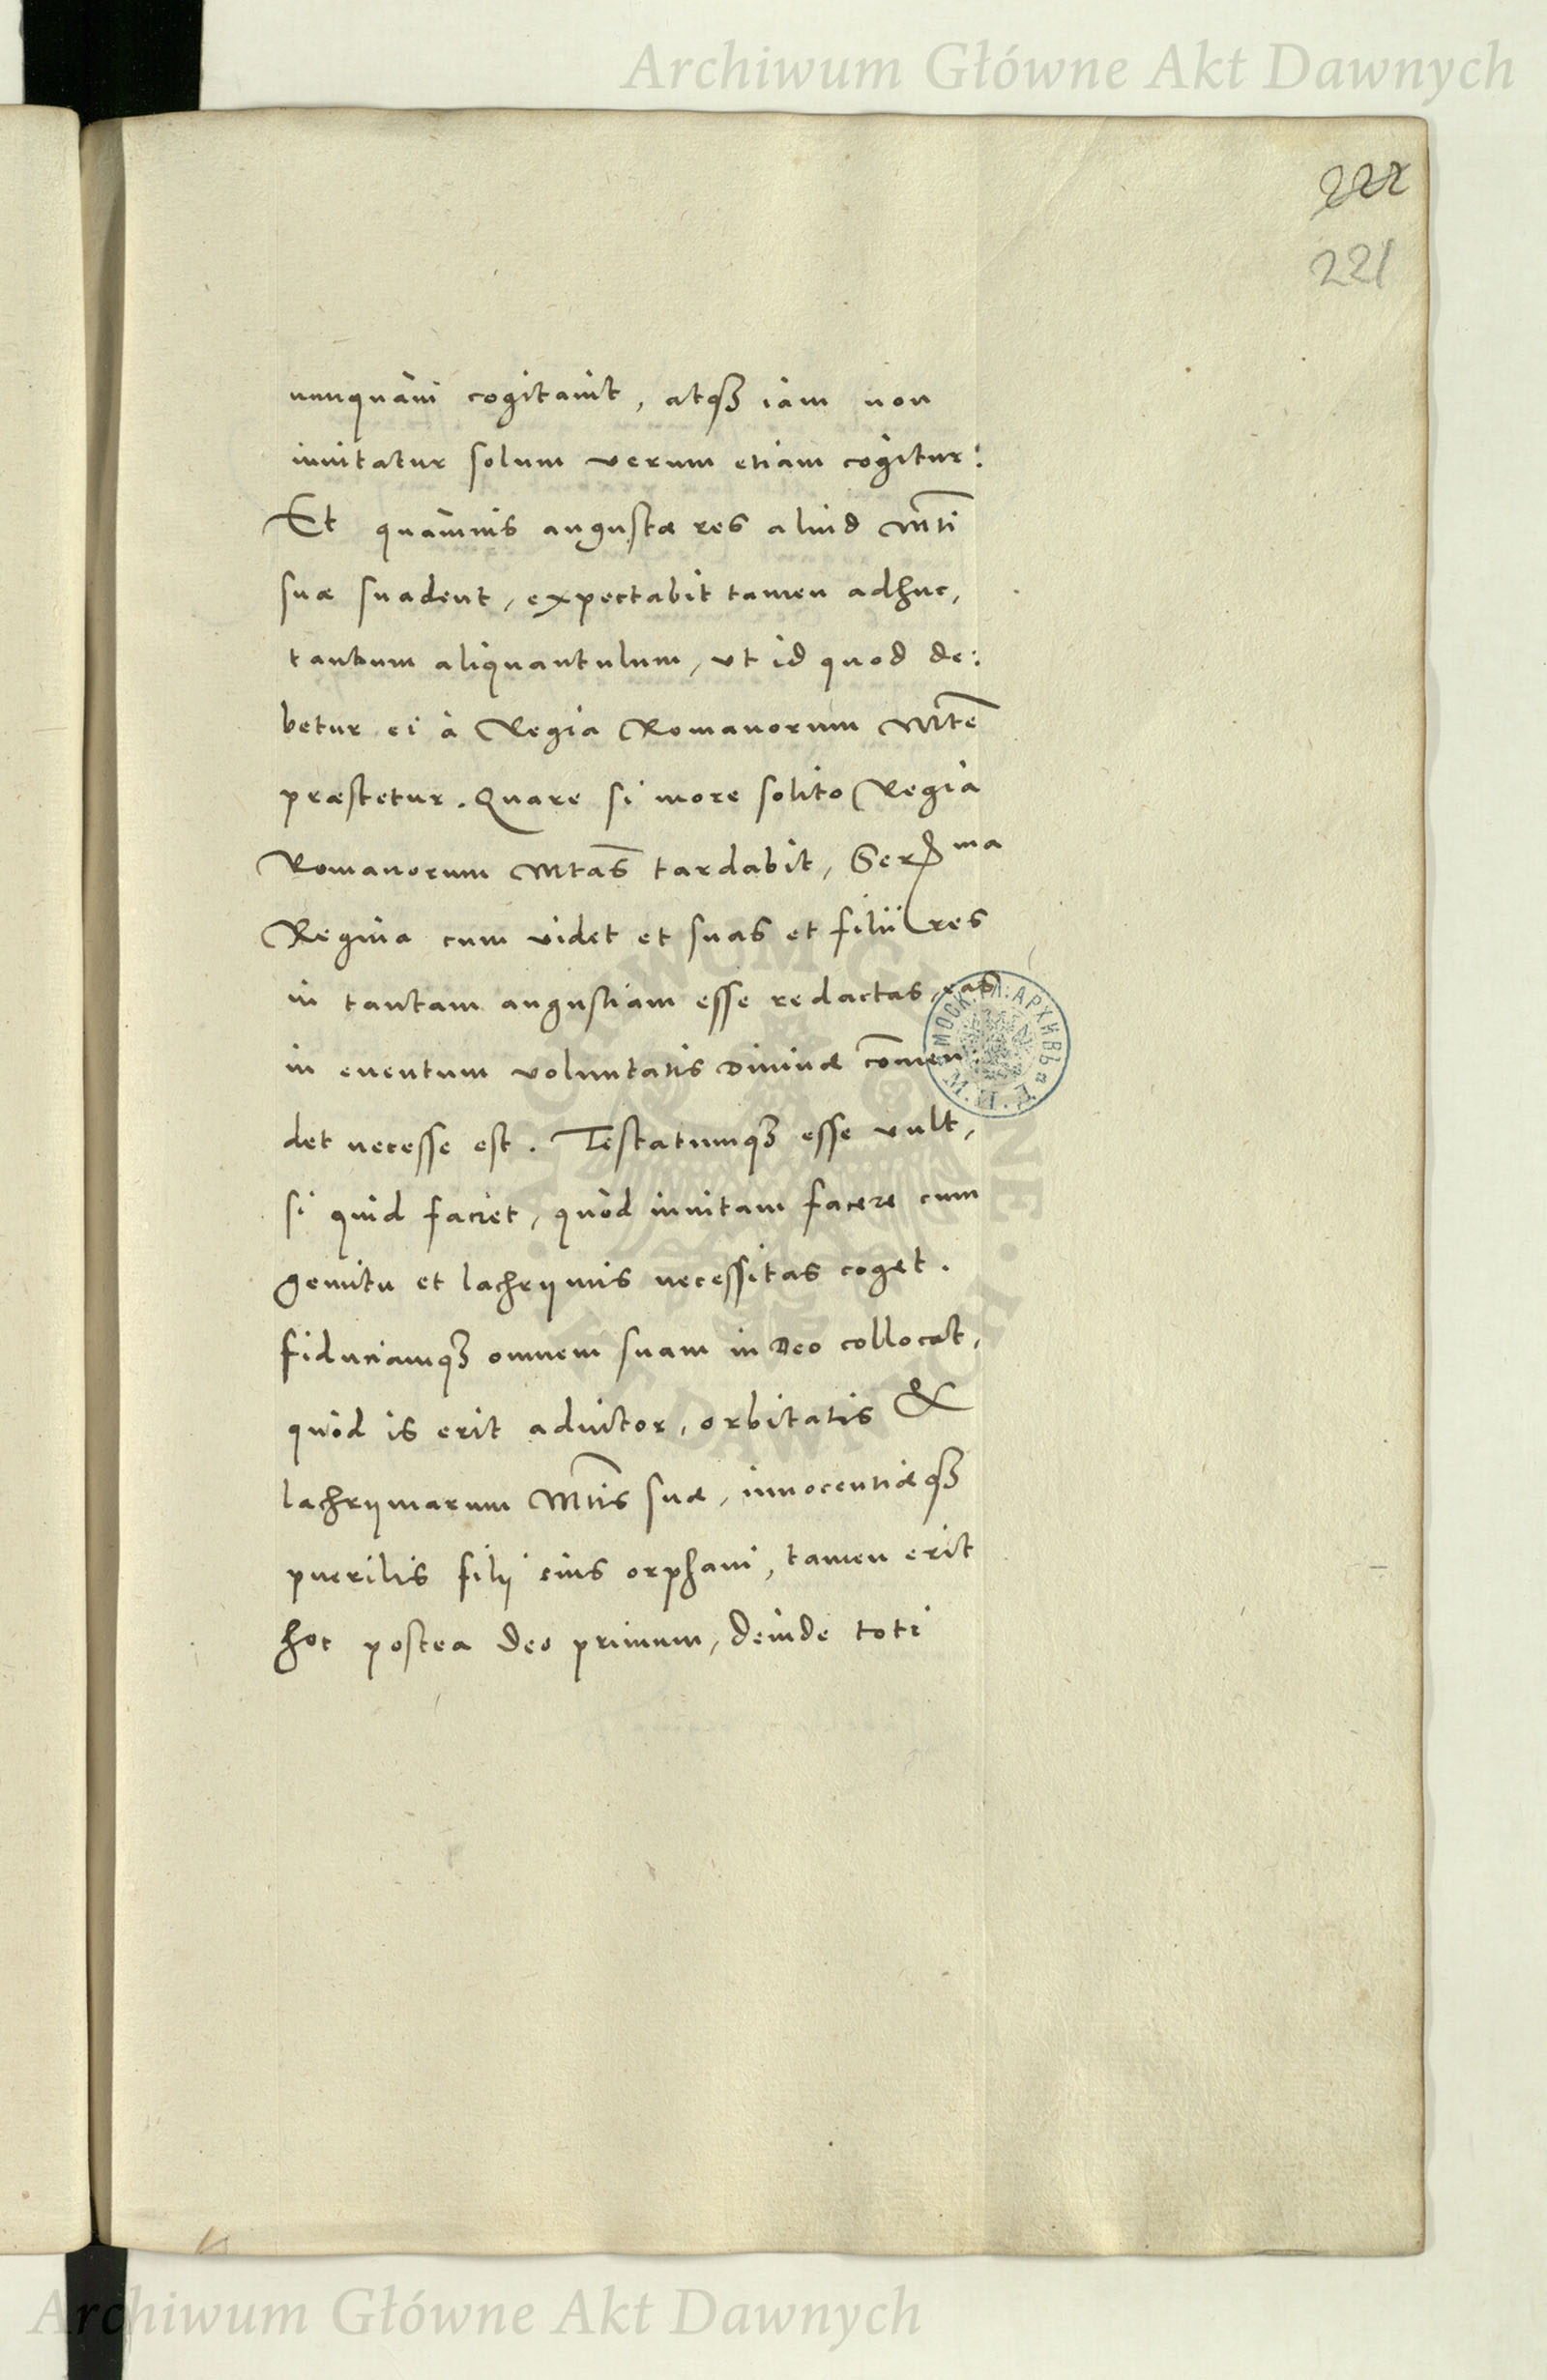 Archiwum Główne Akt Dawnych
222
221
nunquàm cogitauit, atqꝫ iàm non
inuitatur solum verum etiam cogitur:
Et quàmuis angustæ res aliud Mti
suæ suadent, expectabit tamen adhuc,
tantum aliquantulum, vt id quod de:
betur ei à Regia Romanorum Mte
præstetur. Quare si more solito Regia
Romanorum Mtas tardabit, Serma
Regina cum videt et suas et filii res
in tantam angustiam esse redactas, eas
in euentum voluntatis diuinæ com̄en:
det necesse est. Testatumqꝫ esse vult,
si quid faciet, quòd inuitam facere cum
gemitu et lachrymis necessitas coget.
fiduciamqꝫ omnem suam in Deo collocat,
quòd is erit adiutor, orbitatis &
lachrymarum Mtis suæ, innocentiæqꝫ
puerilis filij eius orphani, tamen erit
hoc postea Deo primum, deinde toti
Archiwum Główne Akt Dawnych